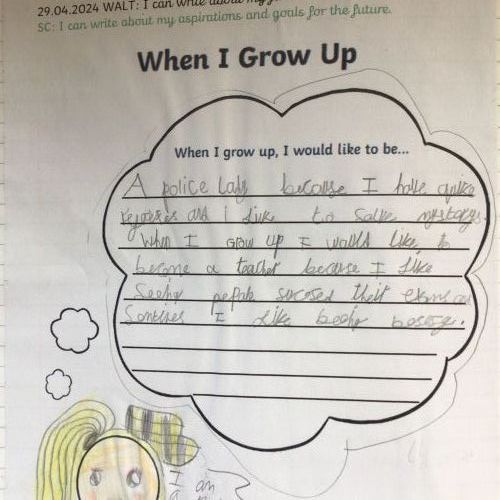 29.04.2024 WALT: I can write about my
SC: I can write about my aspirations and goals for the future.
When I Grow Up
When I grow up, I would like to be...
A police Lady becouse I have quike
and i like to Salve mystarys
When I grow up I would like to
become a teacher becouse I like
Seeing their exams and
I like
I
an